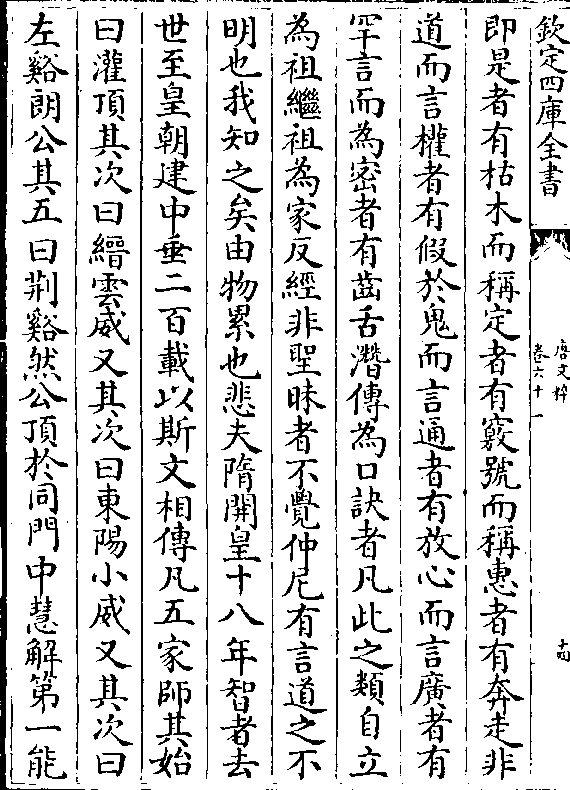 欽定四庫全書
唐文粹
卷六十一
十四
即是者有枯木而稱定者有竅號而稱惠者有奔走非
道而言權者有假於鬼而言通者有放心而言廣者有
罕言而為密者有齒舌潛傳為口訣者凡此之類自立
為祖繼祖為家反經非聖昧者不覺仲尼有言道之不
明也我知之矣由物累也悲夫隋開皇十八年智者去
世至皇朝建中垂二百載以斯文相傳凡五家師其始
曰灌頂其次曰縉雲威又其次曰東陽小威又其次曰
左谿朗公其五曰荆谿然公頂於同門中慧解第一能